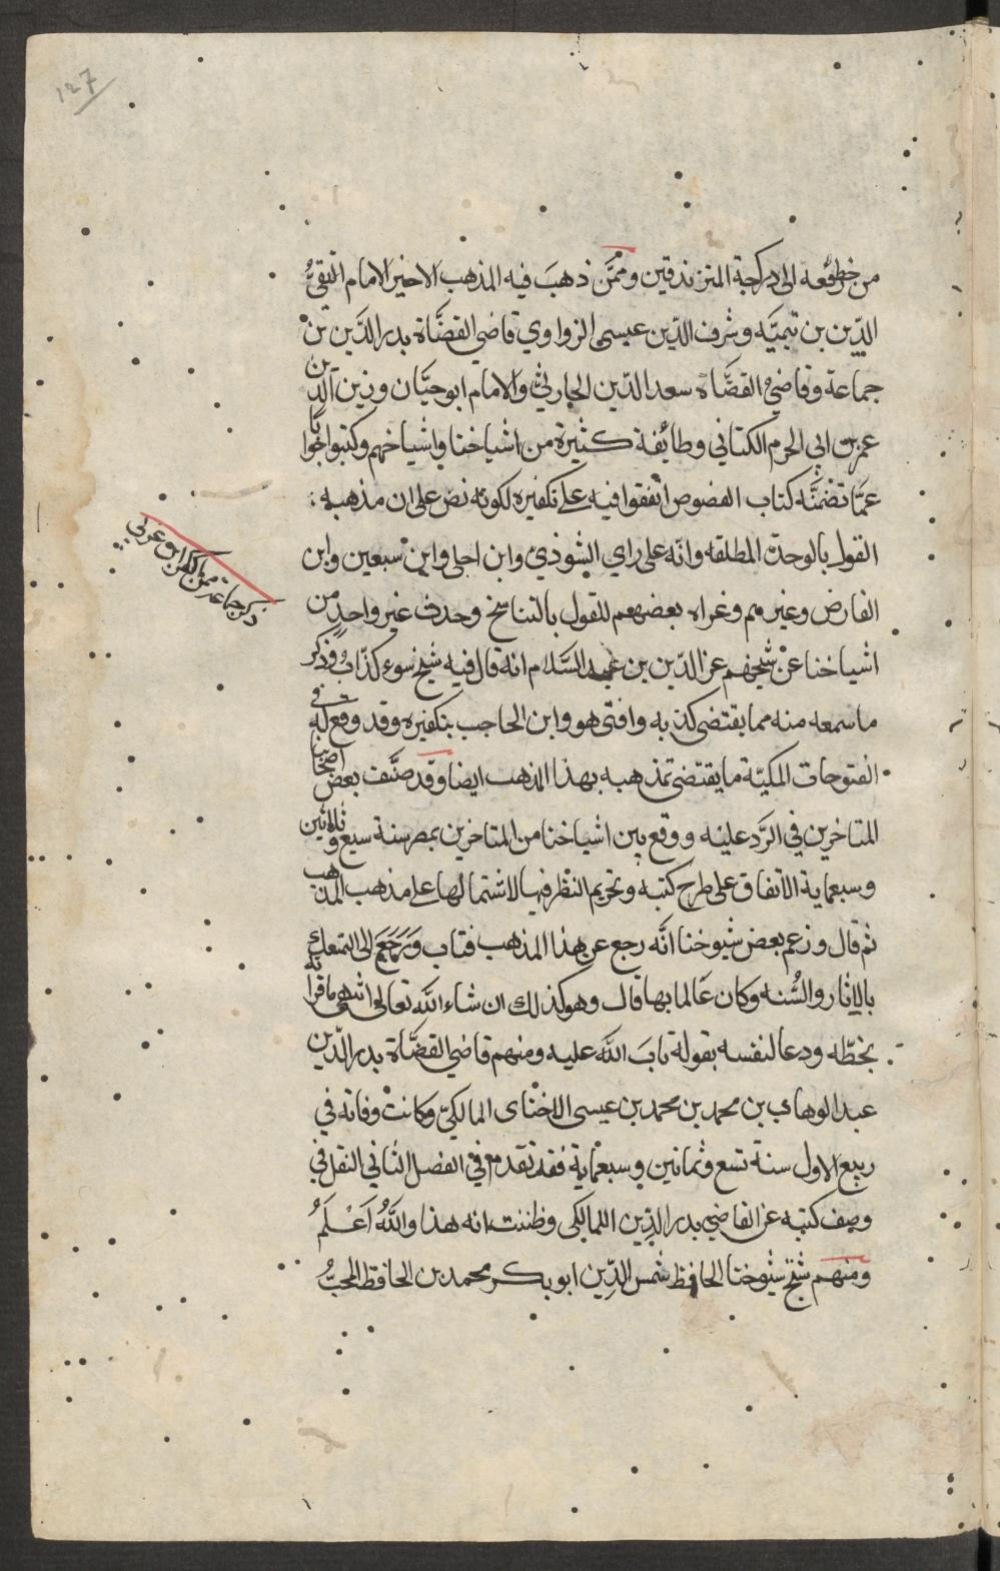 127
من خرطومه الى دركجة المتزندقين وممّن ذهبَ فيه المذهب الاخير الامام التقيُّ
الدّين بن تيميّه وشرف الدّين عيسى الزواوي قاضي القضَّاة بدر الدّين بنْ
جماعة وقاضيْ القضَّاة سعد الدّين الحارثي والامام ابو حيَّان وزين الدّين
عمر بن ابي الحرم الكتاني وطائفة كثيرة من اشياخنا واشياخهم وكتبوا اجوابًا
عمّا تضمّنَّه كتاب الفصوص اتّفقوا فيه على تكفيره لكونه نص على ان مذهبه :
القول بالوحدة المطلقه وانّه على راي الشوذي وابن احلى وابن سبعين وابن
الفارض وغيرهم وغراه بعضهم للقول بالتناسخ وحدث غير واحدٍ من
اشياخنا عنْ شيخهم عز الدّين بن عبد السَّلام انه قال فيه شيخ سوء كذّابٌ وذكر
ما سمعه منه مما يقتضى كذبه وافتى هو وابن الحاجب بتكفيره وقد وقع له في
الفتوحات المكيّة ما يقتضى تمذهبه بهذا المذهب ايضا وقد صنَّف بعض اصحابنا
المتاخرين في الرَّد عليه ووقع بين اشياخنا من المتاخرين بمصر سنة سبع وثلاثين
وسبعماية الاتفاق على طرح كتبه وتحريم النظر فيها لاشتمالها على مذهب المذهب
ثم قال وزعم بعض شيوخنا انَّه رجع عن هذا المذهب فتاب وَرَجَعَ الى التمعلك
بالاثار والسُّنه وكان عَالما بها قال وهو كذلك ان شاء الله تعالى انتهى ما قراته
بخطّه ودعا لنفسه بقوله تابَ اللّه عليه ومنهم قاضي القضَّاة بدر الدّين
عبد الوهاب بن محمد بن محمد بن عيسى الاخناى المالكيّ وكانتْ وفاته في
ربيع الاول سنة تسع وثمانين وسبعماية فقد تقدم في الفصل الثاني النقل في
وصف كتبه عن القاضي بدر الدّين اللمالكى وظننت انه هذا واللَّهُ اَعْلَمُ
ومنهم شيخ شيوخنا الحافظ شمس الدّين ابو بكر محمد بن الحافظ المحبُّ
ذكر جماعة ممن انكر ابن عربي